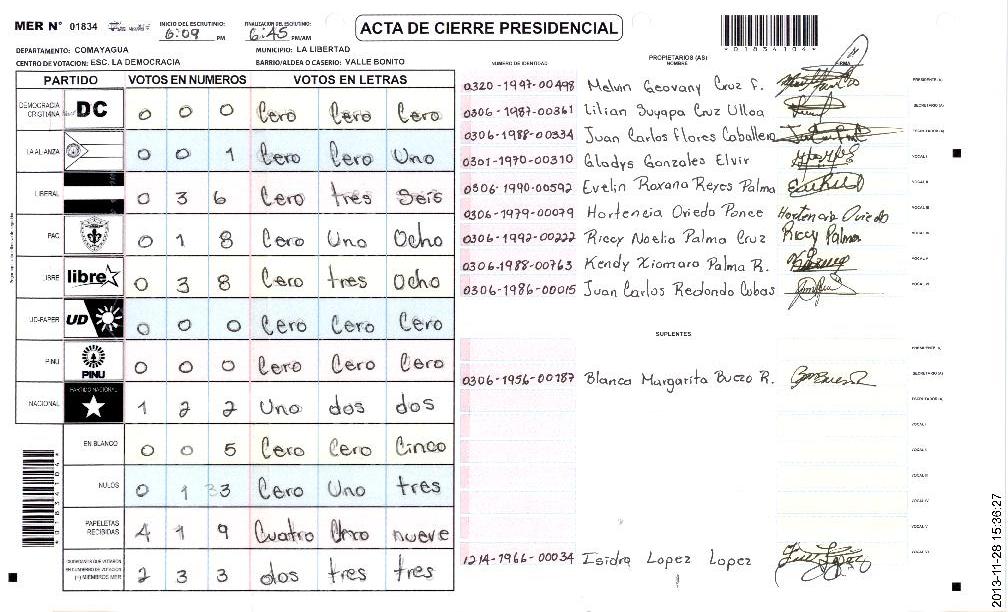 MER N° 01834 INICIO DEL ESCRUTINIO: 6:09 PM FINALIZACION DEL ESCRUTINIO: 6:45 PM/AM
ACTA DE CIERRE PRESIDENCIAL
*01834104*
DEPARTAMENTO: COMAYAGUA MUNICIPIO: LA LIBERTAD
CENTRO DE VOTACION: ESC. LA DEMOCRACIA BARRIO/ALDEA O CASERIO: VALLE BONITO
PARTIDO VOTOS EN NUMEROS VOTOS EN LETRAS
DEMOCRACIA CRISTIANA DC 0 0 0 Cero Cero Cero
LA ALIANZA 0 0 1 Cero Cero Uno
LIBERAL 0 3 6 Cero tres Seis
PAC 0 1 8 Cero Uno Ocho
LIBRE libre 0 3 8 Cero tres Ocho
UD-FAPER UD 0 0 0 Cero Cero Cero
PINU PINU 0 0 0 Cero Cero Cero
NACIONAL PARTIDO NACIONAL 1 2 2 Uno dos dos
EN BLANCO 0 0 5 Cero Cero Cinco
NULOS 0 1 3 Cero Uno tres
PAPELETAS RECIBIDAS 4 1 9 Cuatro Uno nueve
CIUDADANOS QUE VOTARON EN CUADERNO DE VOTACION (+) MIEMBROS MER 2 3 3 dos tres tres
*01834104*
PROPIETARIOS (AS)
NUMERO DE IDENTIDAD NOMBRE FIRMA
0320-1997-00498 Melvin Geovany Cruz F. PRESIDENTE (A)
0306-1987-00361 Lilian Suyapa Cruz Ulloa SECRETARIO (A)
0306-1988-00334 Juan Carlos Flores Caballero ESCRUTADOR (A)
0301-1970-00310 Gladys Gonzales Elvir VOCAL I
0306-1990-00592 Evelin Roxana Reyes Palma VOCAL II
0306-1979-00079 Hortencia Oviedo Ponce Hortencia Oviedo VOCAL III
0306-1992-00222 Riccy Noelia Palma Cruz Riccy Palma VOCAL IV
0306-1988-00763 Kendy Xiomara Palma R. VOCAL V
0306-1986-00015 Juan Carlos Redondo Cobas VOCAL VI
SUPLENTES
PRESIDENTE (A)
0306-1956-00187 Blanca Margarita Buezo R. SECRETARIO (A)
ESCRUTADOR (A)
VOCAL I
VOCAL II
VOCAL III
VOCAL IV
VOCAL V
1214-1966-00034 Isidra Lopez Lopez VOCAL VI
2013-11-28 15:36:27